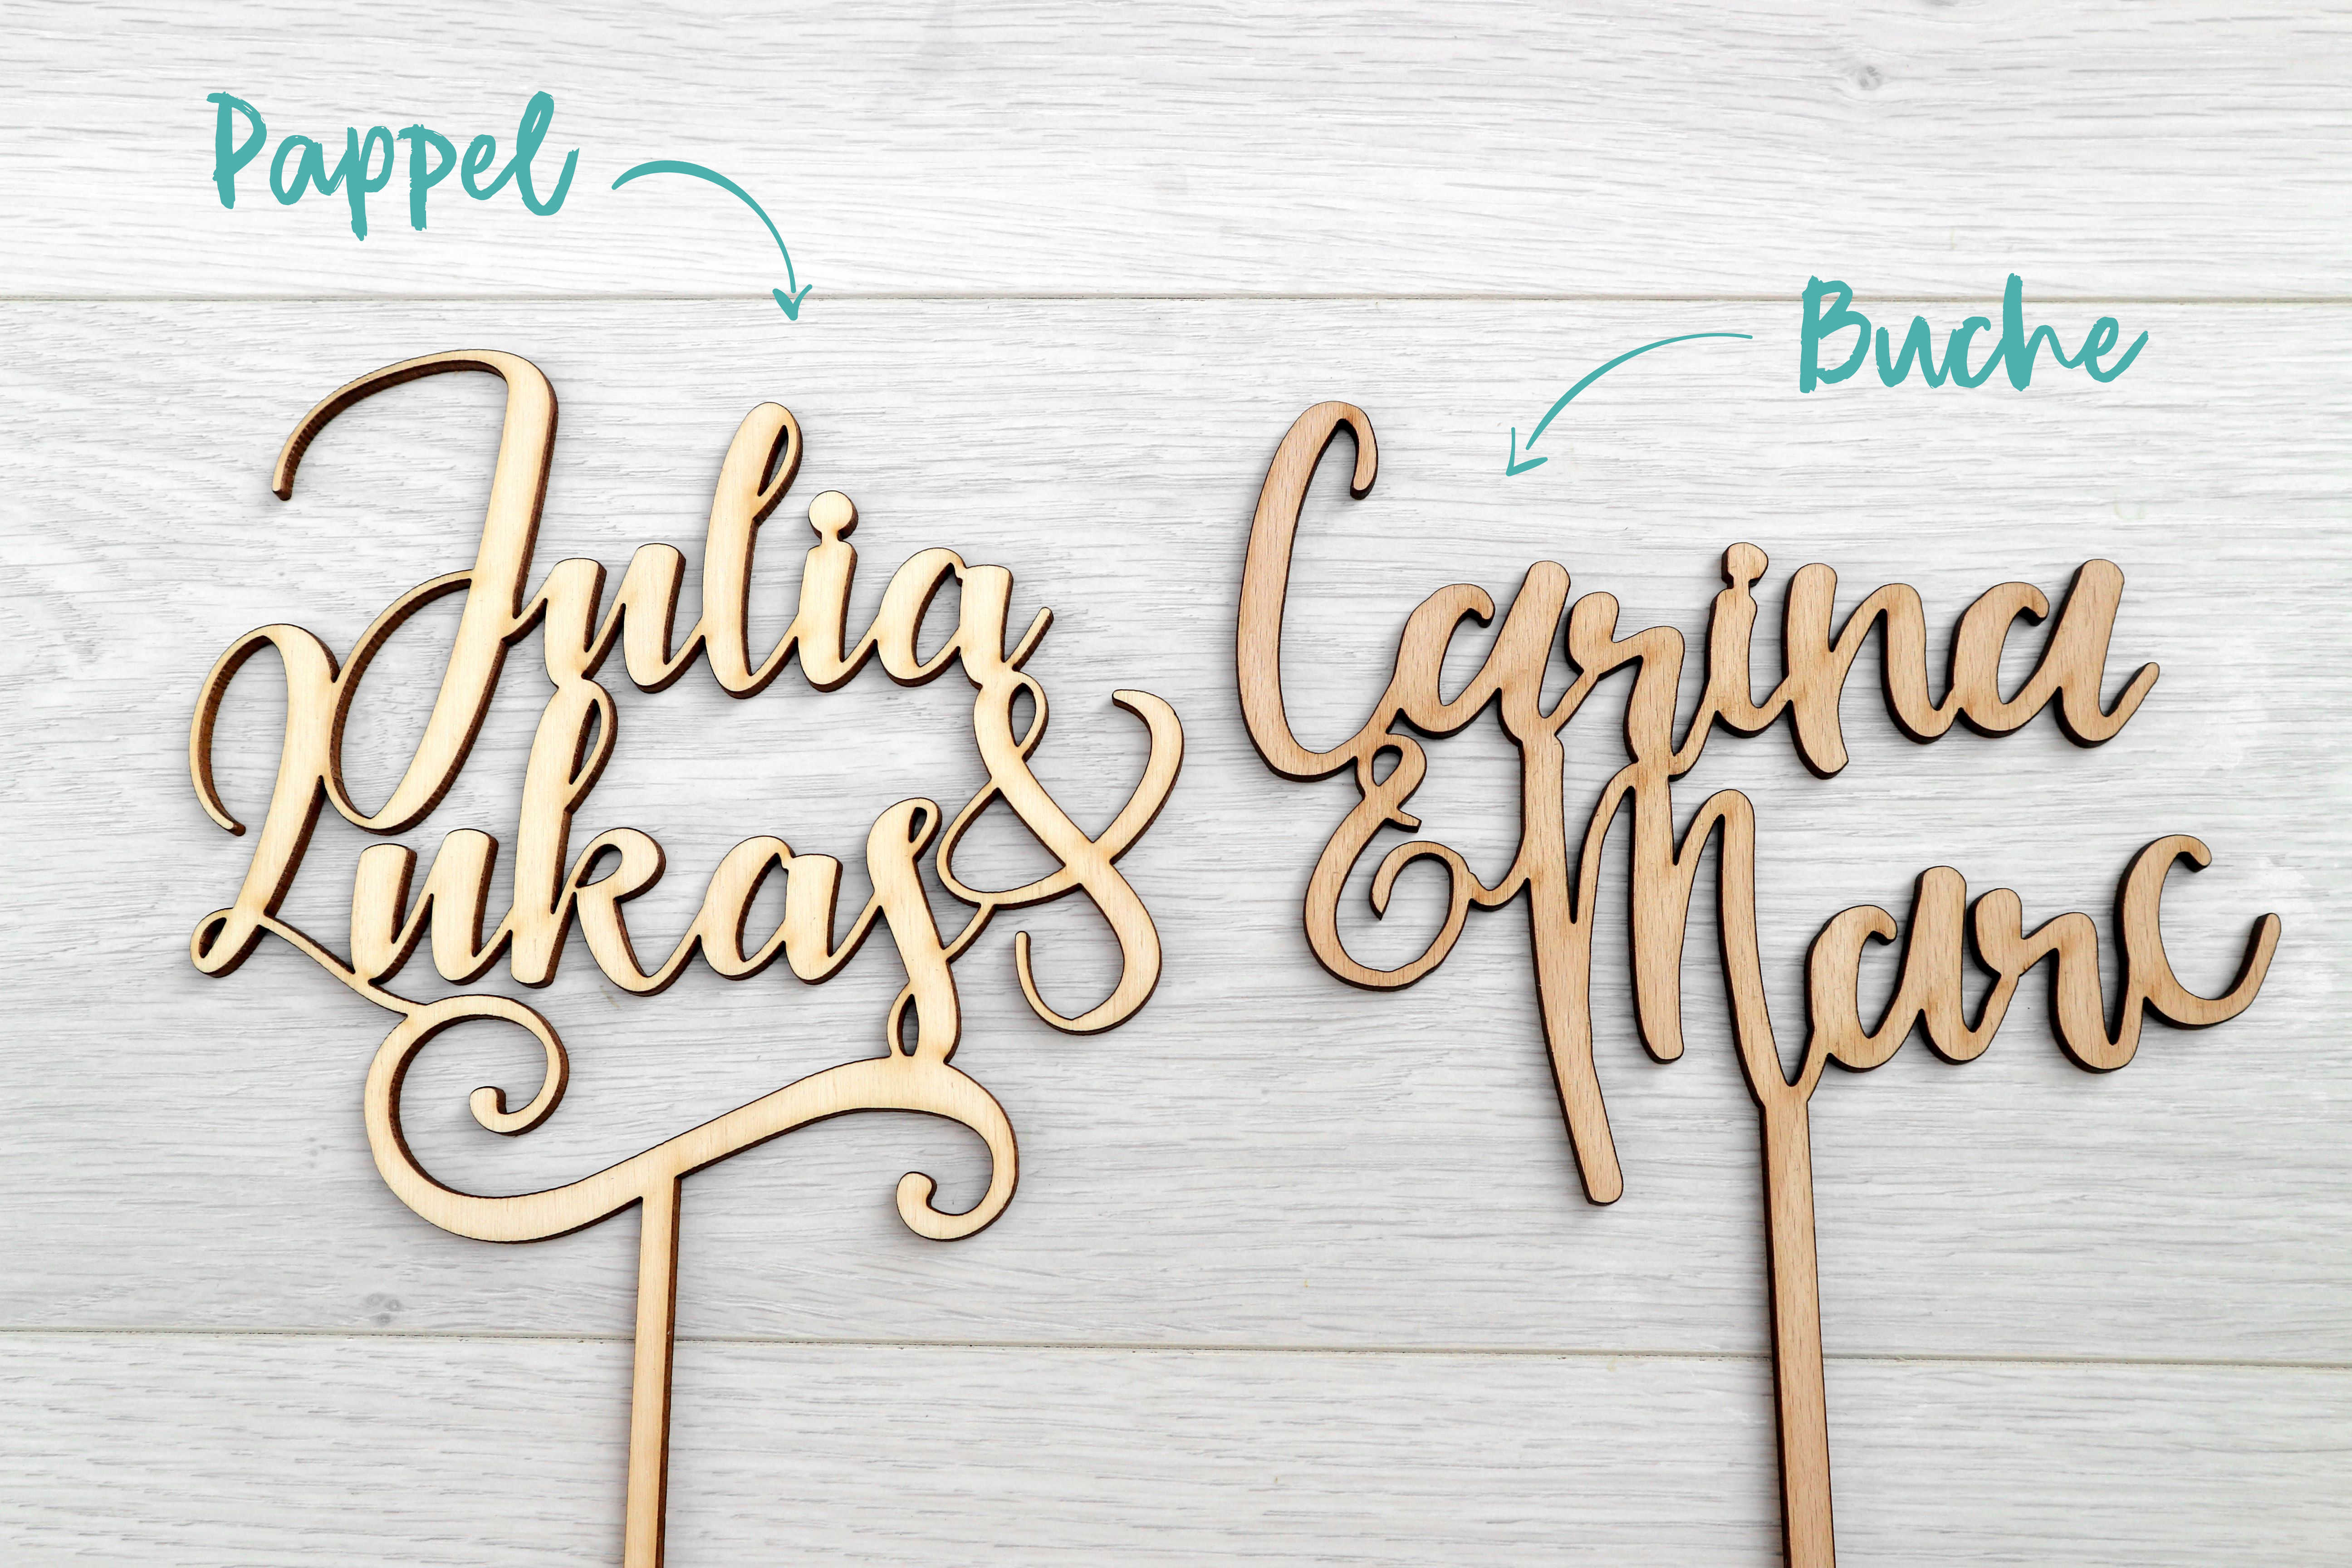 Pappel
Buche
Julia
& Lukas
Carina
& Marc